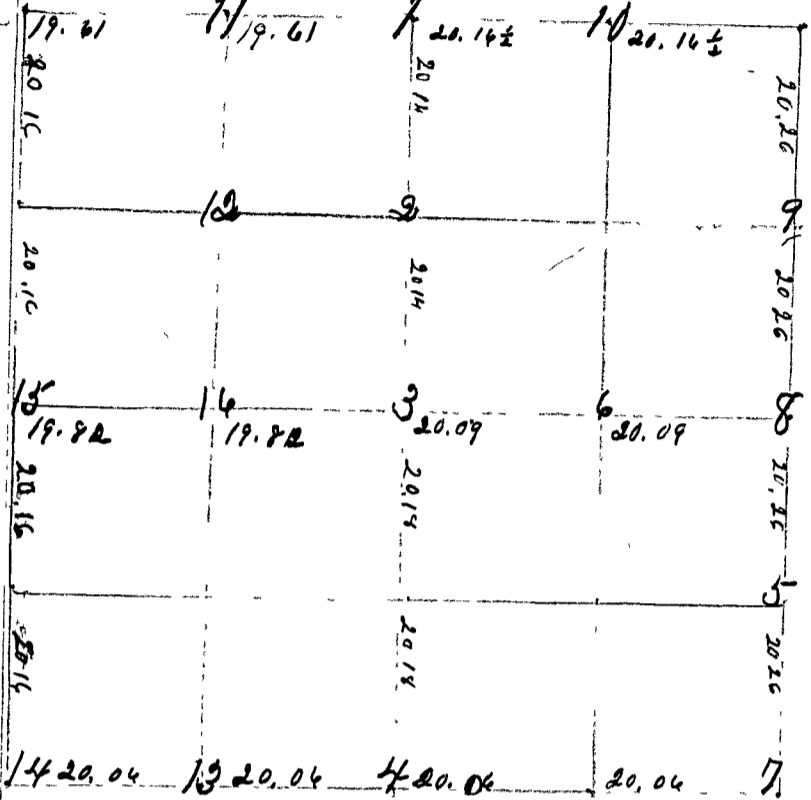 19.61 11 19.61 1 20.16½ 10 20.16½
20 16 20 14 20.26
12 2 9
20.16 20 14 20 26
15 16 3 6 8
19.82 19.82 20.09 20.09
20.16 20.18 20.26
5
20 16 20 18 20 26
14 20.06 13 20.06 4 20.06 20.06 7